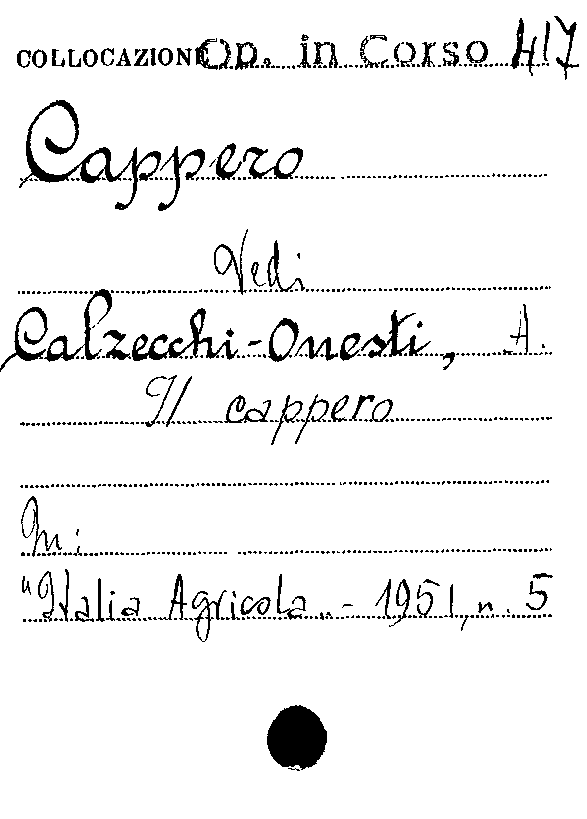 COLLOCAZIONE Op. in Corso 417
Cappero
Vedi
Calzecchi-Onesti, A.
Il cappero
In:
"Italia Agricola„ - 1951, n. 5